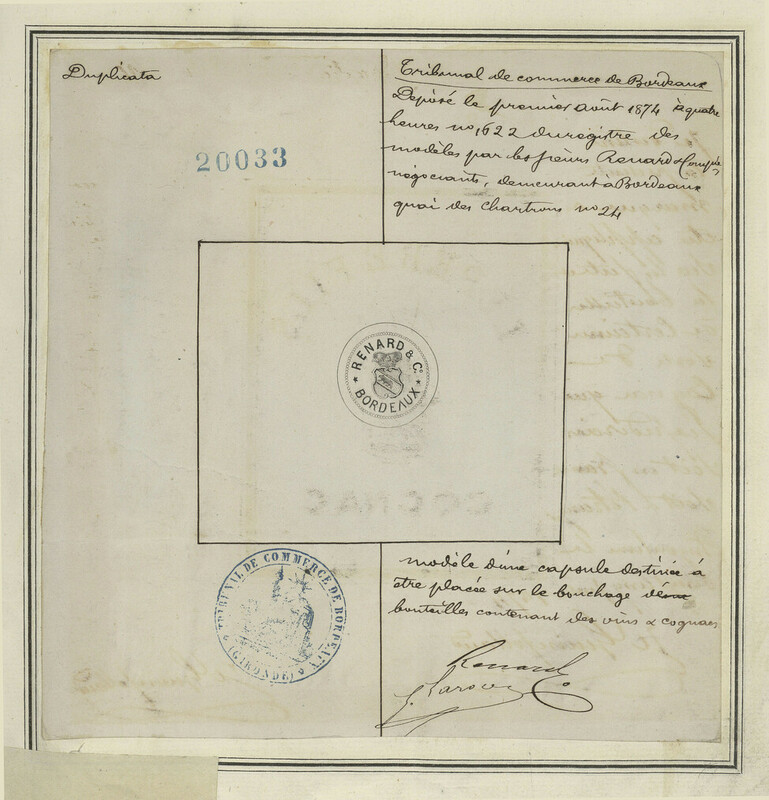 Duplicata
20033
Tribunal de commerce de Bordeaux
Déposé le premier août 1874 à quatre
heures no 1622 du registre des
modèles par les sieurs Renard & Compie,
négociants, demeurant à Bordeaux
quai des Chartrons no 24
RENARD & Co.
BORDEAUX
COGNAC
modèle d'une capsule destinée à
être placée sur le bouchage
bouteilles contenant des vins & cognacs
TRIBUNAL DE COMMERCE DE BORDEAUX
(GIRONDE)
Renard
& Co